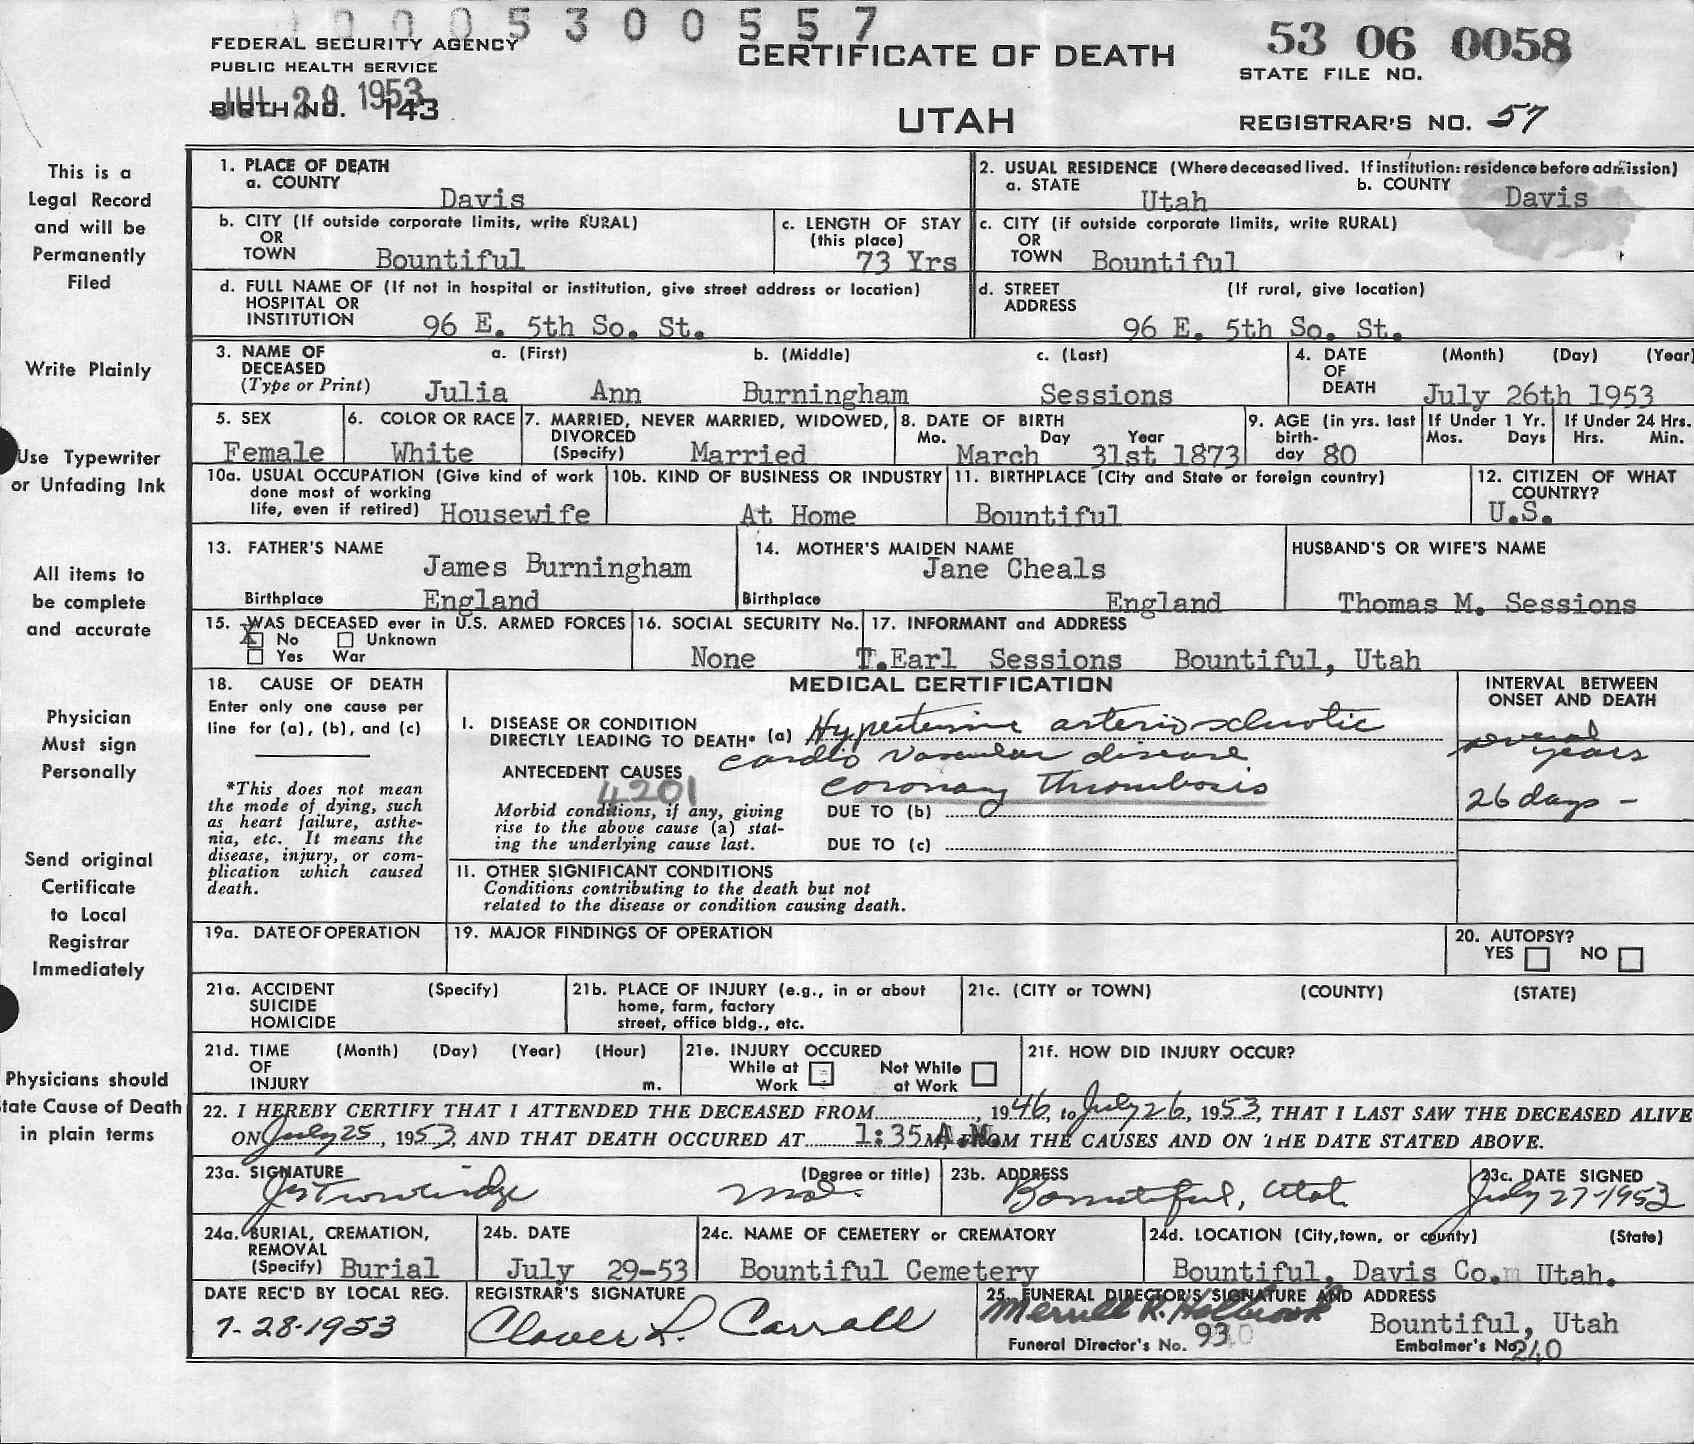 0005300557
FEDERAL SECURITY AGENCY
PUBLIC HEALTH SERVICE
JUL 29 1953
BIRTH NO. 143
CERTIFICATE OF DEATH
UTAH
53 06 0058
STATE FILE NO.
REGISTRAR'S NO. 57
This is a
Legal Record
and will be
Permanently
Filed
Write Plainly
Use Typewriter
or Unfading Ink
All items to
be complete
and accurate
Physician
Must sign
Personally
Send original
Certificate
to Local
Registrar
Immediately
Physicians should
tate Cause of Death
in plain terms
1. PLACE OF DEATH
a. COUNTY
Davis
2. USUAL RESIDENCE (Where deceased lived. If institution: residence before admission)
a. STATE b. COUNTY
Utah Davis
b. CITY (If outside corporate limits, write RURAL)
OR
TOWN Bountiful
c. LENGTH OF STAY
(this place)
73 Yrs
c. CITY (if outside corporate limits, write RURAL)
OR
TOWN Bountiful
d. FULL NAME OF (If not in hospital or institution, give street address or location)
HOSPITAL OR
INSTITUTION 96 E. 5th So. St.
d. STREET (If rural, give location)
ADDRESS
96 E. 5th So. St.
3. NAME OF a. (First) b. (Middle) c. (Last)
DECEASED
(Type or Print) Julia Ann Burningham Sessions
4. DATE (Month) (Day) (Year)
OF
DEATH July 26th 1953
5. SEX
Female
6. COLOR OR RACE
White
7. MARRIED, NEVER MARRIED, WIDOWED,
DIVORCED
(Specify) Married
8. DATE OF BIRTH
Mo. Day Year
March 31st 1873
9. AGE (in yrs. last
birth-
day 80
If Under 1 Yr.
Mos. Days
If Under 24 Hrs.
Hrs. Min.
10a. USUAL OCCUPATION (Give kind of work
done most of working
life, even if retired) Housewife
10b. KIND OF BUSINESS OR INDUSTRY
At Home
11. BIRTHPLACE (City and State or foreign country)
Bountiful
12. CITIZEN OF WHAT
COUNTRY?
U.S.
13. FATHER'S NAME
James Burningham
Birthplace England
14. MOTHER'S MAIDEN NAME
Jane Cheals
Birthplace England
HUSBAND'S OR WIFE'S NAME
Thomas M. Sessions
15. WAS DECEASED ever in U.S. ARMED FORCES
X No Unknown
Yes War
16. SOCIAL SECURITY No.
None
17. INFORMANT and ADDRESS
T.Earl Sessions Bountiful, Utah
18. CAUSE OF DEATH
Enter only one cause per
line for (a), (b), and (c)
*This does not mean
the mode of dying, such
as heart failure, asthe-
nia, etc. It means the
disease, injury, or com-
plication which caused
death.
MEDICAL CERTIFICATION
I. DISEASE OR CONDITION
DIRECTLY LEADING TO DEATH* (a) Hypertensive arterio sclerotic
cardio vascular disease
ANTECEDENT CAUSES
4201
coronary thrombosis
Morbid conditions, if any, giving
rise to the above cause (a) stat-
ing the underlying cause last.
DUE TO (b)
DUE TO (c)
INTERVAL BETWEEN
ONSET AND DEATH
several
years
26 days -
II. OTHER SIGNIFICANT CONDITIONS
Conditions contributing to the death but not
related to the disease or condition causing death.
19a. DATE OF OPERATION
19. MAJOR FINDINGS OF OPERATION
20. AUTOPSY?
YES NO
21a. ACCIDENT (Specify)
SUICIDE
HOMICIDE
21b. PLACE OF INJURY (e.g., in or about
home, farm, factory
street, office bldg., etc.
21c. (CITY or TOWN) (COUNTY) (STATE)
21d. TIME (Month) (Day) (Year) (Hour)
OF
INJURY m.
21e. INJURY OCCURED
While at Not While
Work at Work
21f. HOW DID INJURY OCCUR?
22. I HEREBY CERTIFY THAT I ATTENDED THE DECEASED FROM , 1946, to July 26, 1953, THAT I LAST SAW THE DECEASED ALIVE
ON July 25, 1953, AND THAT DEATH OCCURED AT 1:35 A.M. FROM THE CAUSES AND ON THE DATE STATED ABOVE.
23a. SIGNATURE (Degree or title)
MD.
23b. ADDRESS
Bountiful, Utah
23c. DATE SIGNED
July 27-1953
24a. BURIAL, CREMATION,
REMOVAL
(Specify) Burial
24b. DATE
July 29-53
24c. NAME OF CEMETERY OR CREMATORY
Bountiful Cemetery
24d. LOCATION (City, town, or county) (State)
Bountiful, Davis Co. Utah.
DATE REC'D BY LOCAL REG.
7-28-1953
REGISTRAR'S SIGNATURE
Clover L. Carrall
25. FUNERAL DIRECTOR'S SIGNATURE AND ADDRESS
Merrill R. Holbrook
Bountiful, Utah
Funeral Director's No. 93
Embalmer's No. 240